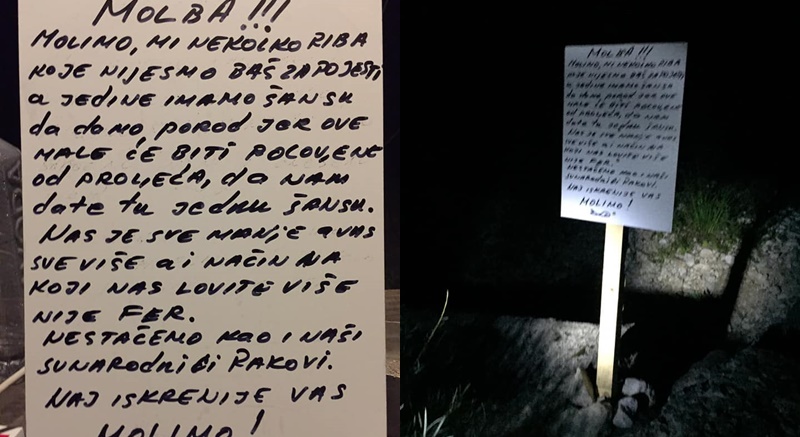 MOLBA !!!
MOLIMO, MI NEKOLKO RIBA
KOJE NIJESMO BAŠ ZA POJESTI
a JEDINE IMAMO ŠANSU
da damo porod JER OVE
MALE ĆE BITI POLOVLJENE
od PROLJEĆA, da NAM
date tu JEDNU ŠANSU.
NAS JE SVE MANJE a VAS
SVE VIŠE a i NAČIN NA
KOJI NAS LOVITE VIŠE
NIJE FER.
NESTAĆEMO KAO I NAŠI
SUNARODNICI RAKOVI.
NAJ ISKRENIJE VAS
MOLIMO!
MOLBA !!!
MOLIMO, MI NEKOLKO RIBA
KOJE NIJESMO BAŠ ZA POJESTI
a JEDINE IMAMO ŠANSU
da damo porod JER OVE
MALE ĆE BITI POLOVLJENE
od PROLJEĆA, da NAM
date tu JEDNU ŠANSU.
NAS JE SVE MANJE a VAS
SVE VIŠE a i NAČIN NA
KOJI NAS LOVITE VIŠE
NIJE FER.
NESTAĆEMO KAO I NAŠI
SUNARODNICI RAKOVI.
NAJ ISKRENIJE VAS
MOLIMO!